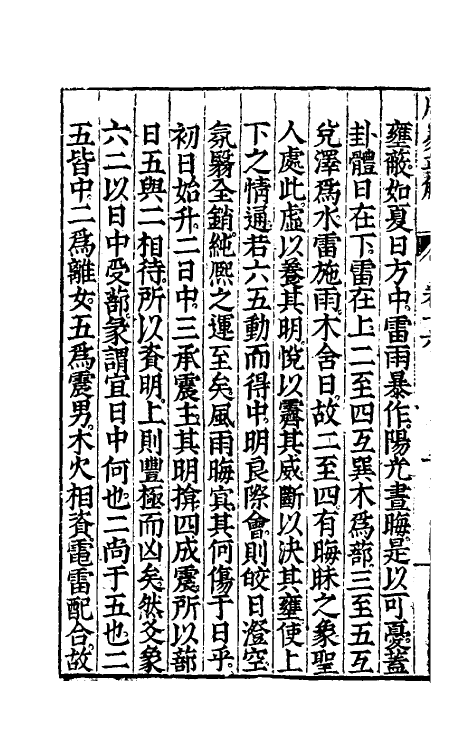 壅蔽如夏日方中雷雨暴作陽光晝晦是以可憂蓋
卦體日在下雷在上二至四互巽木為蔀三至五互
兌澤為水雷施雨木含日故二至四有晦昧之象聖
人處此虛以養其明悅以霽其威斷以決其壅使上
下之情通若六五動而得中明良際會則皎日澄空
氛翳全銷純熈之運至矣風雨晦冥其何傷于日乎
初日始升二日中三承震主其明揜四成震所以蔀
日五與二相待所以資明上則豐極而凶矣然爻象
六二以日中受蔀彖謂宜日中何也二尚于五也二
五皆中二為離女五為震男木火相資電雷配合故